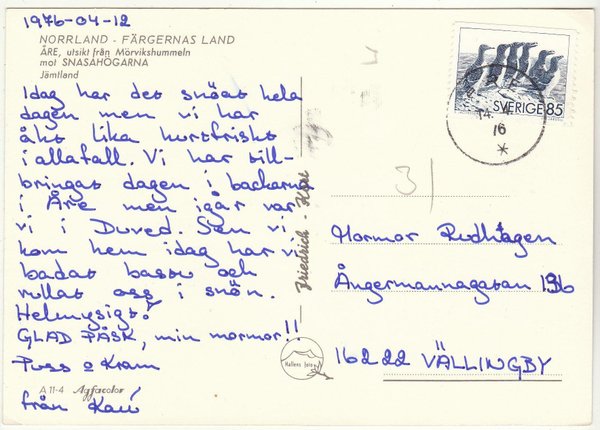 1976-04-12
NORRLAND - FÄRGERNAS LAND
ÅRE, utsikt från Mörvikshummeln
mot SNASAHÖGARNA
Jämtland
Idag har det snöat hela
dagen men vi har
åkt lika hurtfriskt
i allafall. Vi har till-
bringat dagen i backarna
i Åre men igår var
vi i Duved. Sen vi
kom hem idag har vi
badat bastu och
rullat oss i snön.
Helmysigt!
GLAD PÅSK, min mormor!!
Puss o Kram
A 11-4 Agfacolor
från
SVERIGE 85
14. 4.
76
3
Mormor Rudhagen
Ångermannagatan 136
162 22 VÄLLINGBY
Hallens foto